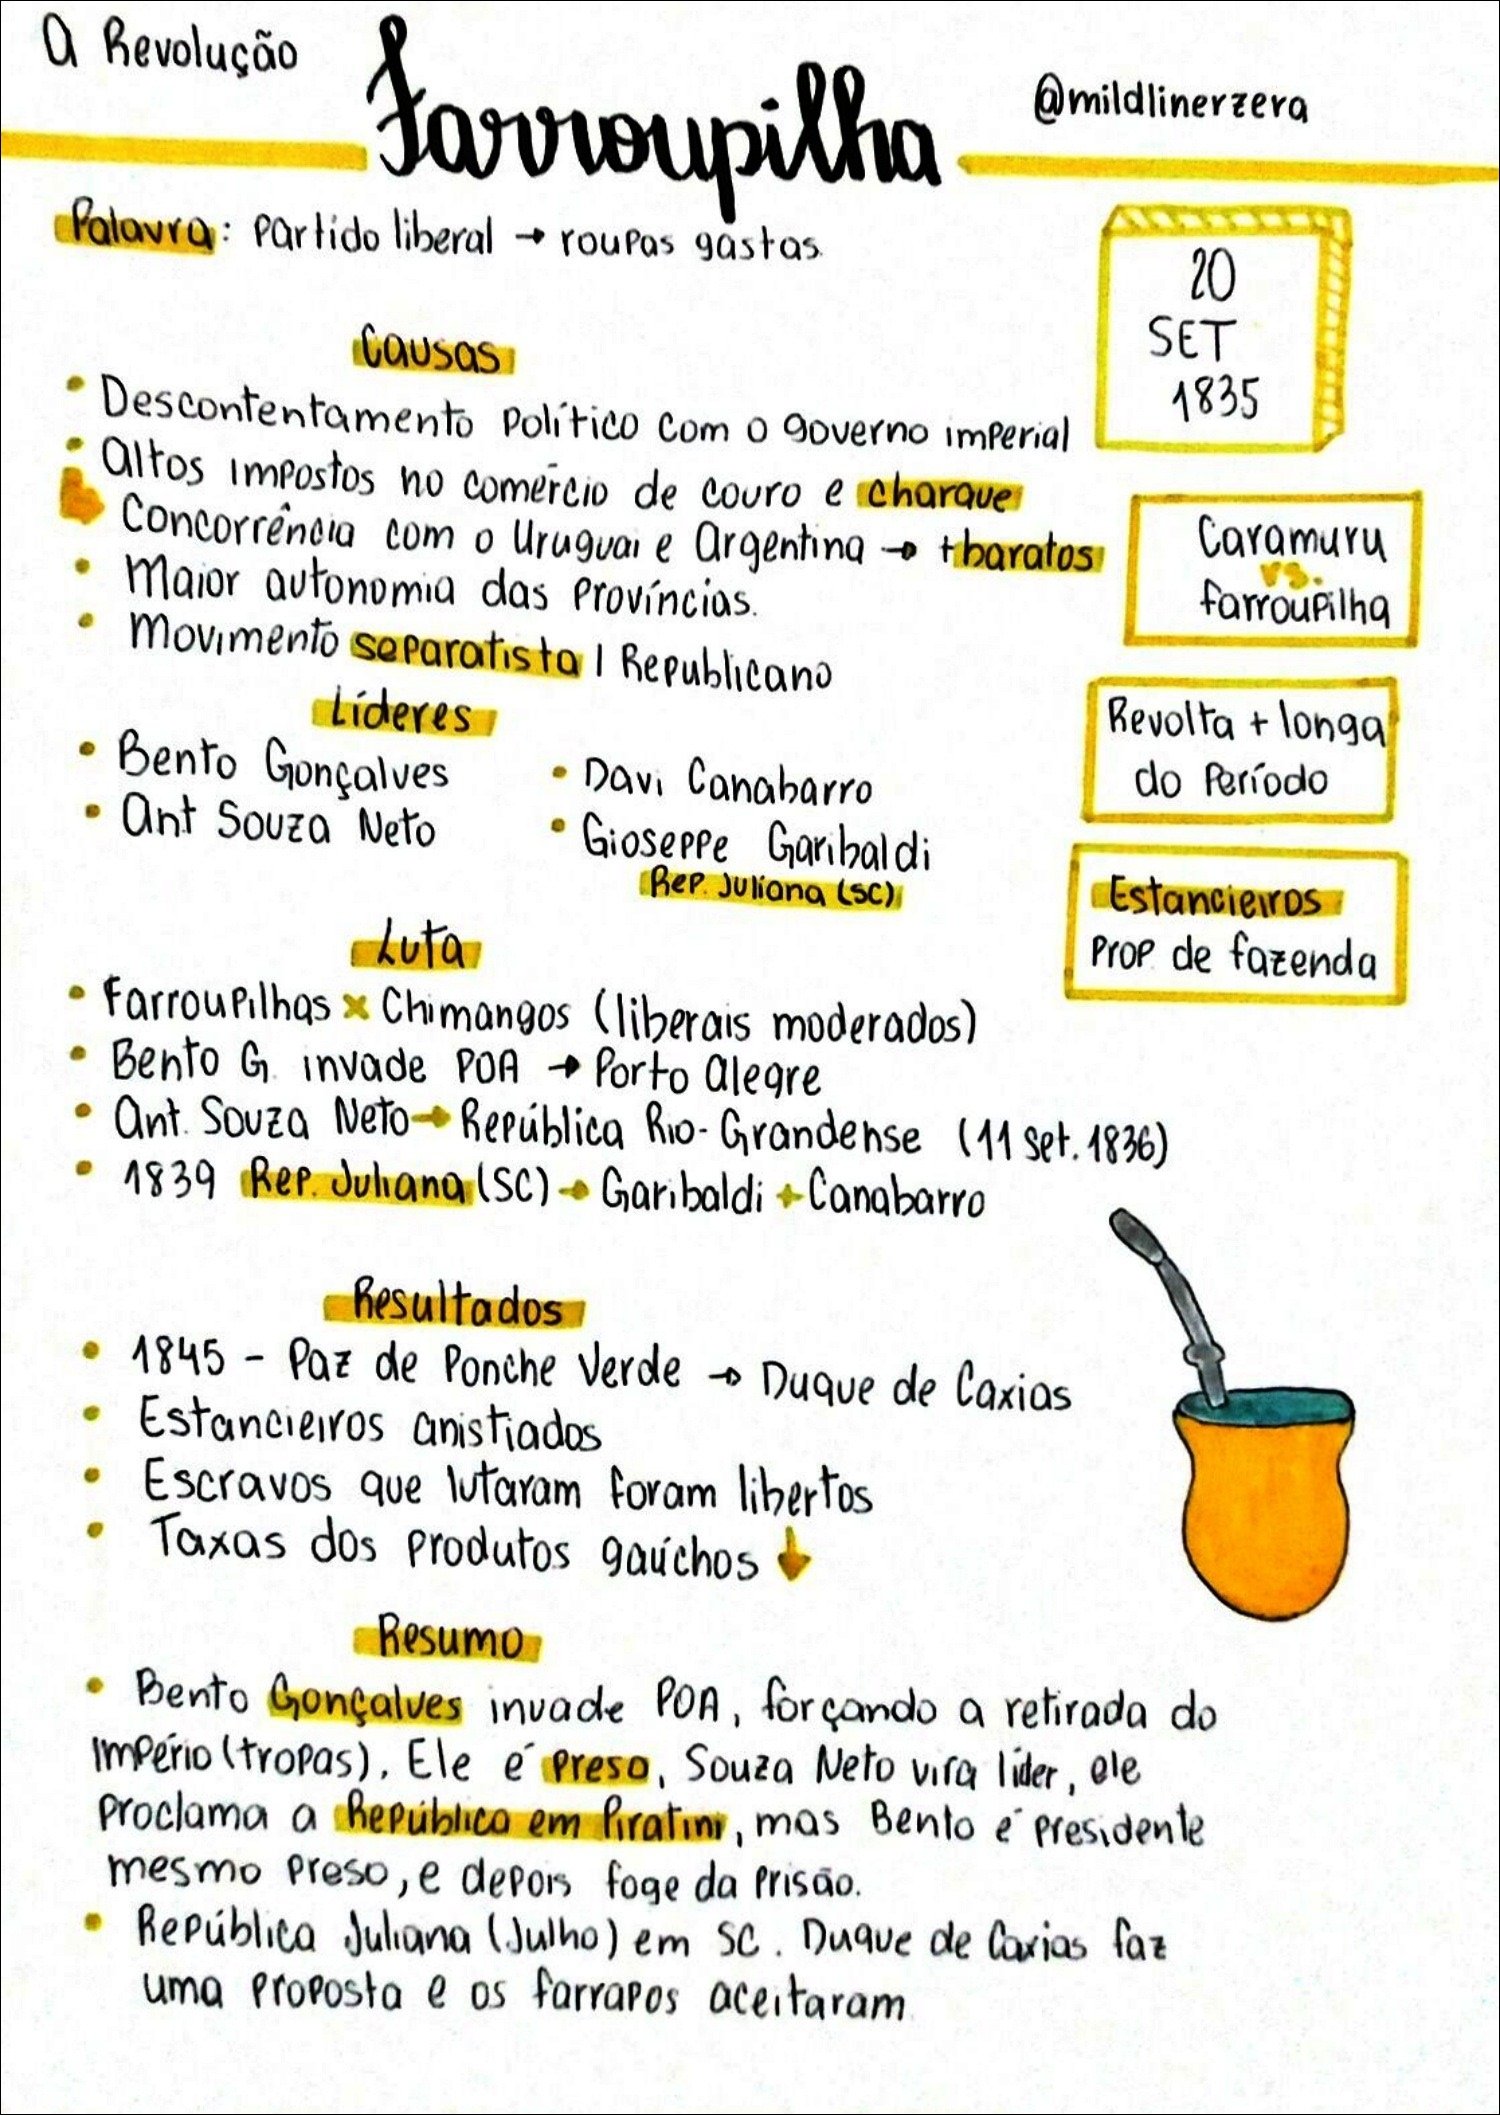 A Revolução
Farroupilha
@mildlinerzera
Palavra: partido liberal → roupas gastas
20
SET
1835
Causas
• Descontentamento político com o governo imperial
• Altos impostos no comércio de couro e charque
Concorrência com o Uruguai e Argentina → + baratos
• Maior autonomia das províncias.
• Movimento separatista / Republicano
Caramuru
vs.
farroupilha
Revolta + longa
do Período
Estancieiros
prop. de fazenda
Líderes
• Bento Gonçalves
• Ant Souza Neto
• Davi Canabarro
• Gioseppe Garibaldi
Rep. Juliana (SC)
Luta
• Farroupilhas x Chimangos (liberais moderados)
• Bento G. invade POA → Porto Alegre
• Ant. Souza Neto → República Rio-Grandense (11 set. 1836)
• 1839 Rep. Juliana (SC) → Garibaldi + Canabarro
Resultados
• 1845 - Paz de Ponche Verde → Duque de Caxias
• Estancieiros anistiados
• Escravos que lutaram foram libertos
• Taxas dos produtos gaúchos ↓
Resumo
• Bento Gonçalves invade POA, forçando a retirada do
império (tropas). Ele é preso, Souza Neto vira líder, ele
proclama a República em Piratini, mas Bento é presidente
mesmo preso, e depois foge da prisão.
• República Juliana (Julho) em SC. Duque de Caxias faz
uma proposta e os farrapos aceitaram